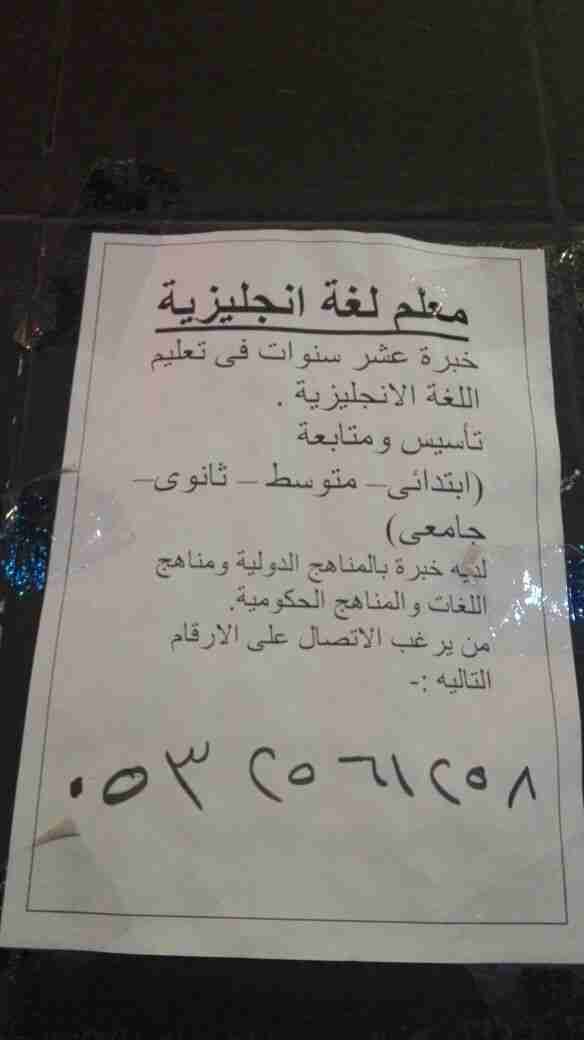 معلم لغة انجليزية
خبرة عشر سنوات فى تعليم
اللغة الانجليزية .
تأسيس ومتابعة
(ابتدائى– متوسط – ثانوى–
جامعى)
لديه خبرة بالمناهج الدولية ومناهج
اللغات والمناهج الحكومية.
من يرغب الاتصال على الارقام
التاليه :-
٠٥٣٢٥٦١٢٥٨